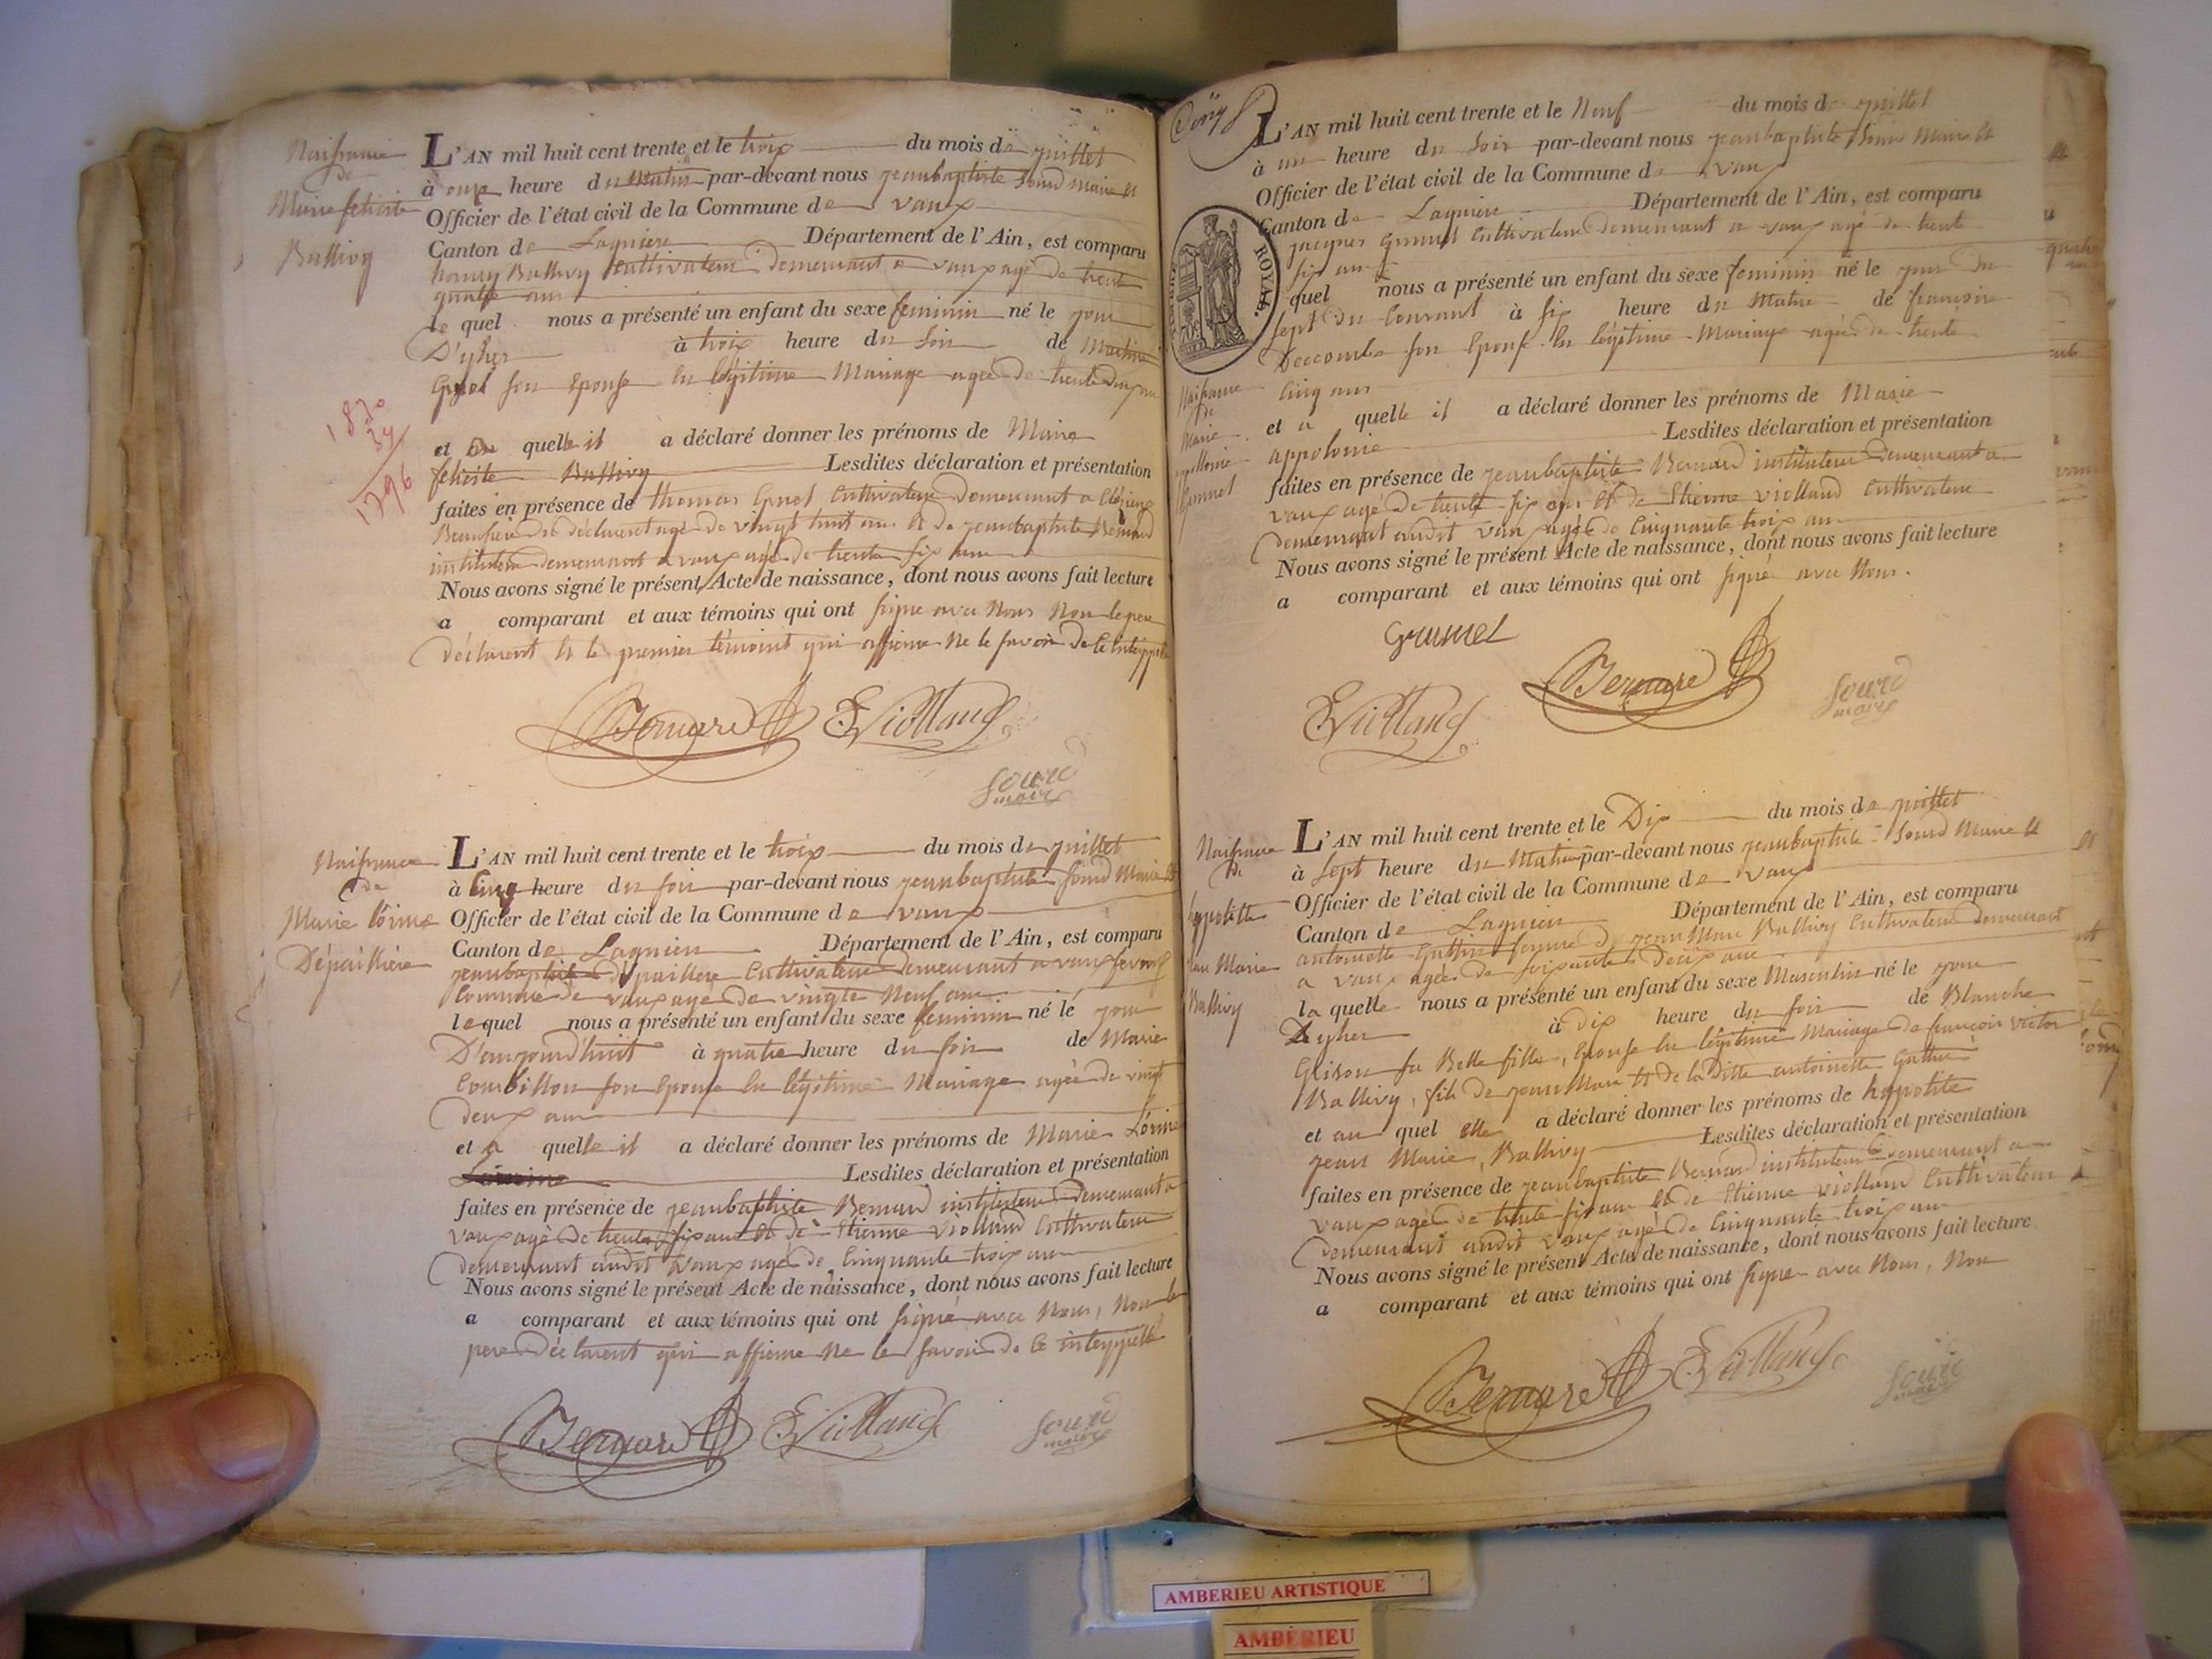 Naissance
de
Marie felicité
Ballivy
L'AN mil huit cent trente et le trois du mois de juillet
à onze heure du matin par-devant nous jeanbaptiste Sourd maire et
Officier de l'état civil de la Commune de Vaux
Canton de Lagnieu Département de l'Ain, est comparu
Ballivy Cultivateur demeurant a vaux agé de trente
quatre ans
le quel nous a présenté un enfant du sexe feminin né le jour
D'yher à trois heure du Soir de Martine
son Epouse en légitime Mariage agée de trente deux ans
1830
34
1796
et a quelle il a déclaré donner les prénoms de Marie
felicité Ballivy Lesdites déclaration et présentation
faites en présence de thomas Cultivateur demeurant a
Beaufrere du déclarent agé de vingt huit ans et de jeanbaptiste Bernard
instituteur demeurant a vaux agé de trente six ans
Nous avons signé le présent Acte de naissance, dont nous avons fait lecture
a comparant et aux témoins qui ont signé avec Nous Non le pere
déclarent et le premier témoint qui affirme Ne le savoir de ce inteppellé
Bernard EViolland
Sourd
maire
Naissance
de
Marie Lorine
Dépaillière
L'AN mil huit cent trente et le trois du mois de juillet
à Cinq heure du soir par-devant nous jeanbaptiste Sourd Maire et
Officier de l'état civil de la Commune de vaux
Canton de Lagnieu Département de l'Ain, est comparu
jeanbaptiste dépaillere Cultivateur demeurant a vaux fevroux
Commune de vaux agé de vingte Neuf ans
le quel nous a présenté un enfant du sexe feminin né le jour
D'aujourd'huit à quatre heure du soir de Marie
Courbillon son Epouse en légitime Mariage agée de vingt
deux ans
et a quelle il a déclaré donner les prénoms de Marie Lorine
Lesdites déclaration et présentation
faites en présence de jeanbaptiste Bernard instituteur demeurant a
vaux agé de trente six ans et de Etienne Violland Cultivateur
demeurant audit Vaux agé de Cinquante trois ans
Nous avons signé le présent Acte de naissance, dont nous avons fait lecture
a comparant et aux témoins qui ont signé avec Nous, Non le
pere déclarent qui affirme Ne le savoir de ce inteppellé
Bernard EViolland Sourd
maire
L'AN mil huit cent trente et le Neuf du mois de juillet
à un heure du soir par-devant nous jeanbaptiste Sourd Maire et
Officier de l'état civil de la Commune de Vaux
Canton de Lagnieu Département de l'Ain, est comparu
jacques Grumel Cultivateur demeurant a vaux agé de trente
six ans
ROYAL.
quel nous a présenté un enfant du sexe feminin né le jour du
Sept du Courant à six heure du Matin de françoise
Deccombe son Epouse en légitime Mariage agée de trente
Cinq ans
Naissance
de
Marie
appollonie
Grumel
et a quelle il a déclaré donner les prénoms de Marie
appolonie Lesdites déclaration et présentation
faites en présence de jeanbaptiste Bernard instituteur demeurant a
vaux agé de trente six ans et de Etienne violland Cultivateur
demeurant audit Vaux agé de Cinquante trois ans
Nous avons signé le présent Acte de naissance, dont nous avons fait lecture
a comparant et aux témoins qui ont signé avec Nous.
Grumel
Bernard
EViolland
Sourd
maire
Naissance
de
hyppolitte
jean Marie
Ballivy
L'AN mil huit cent trente et le Dix du mois de juillet
à Sept heure du Matin par-devant nous jeanbaptiste Sourd Maire et
Officier de l'état civil de la Commune de Vaux
Canton de Lagnieu Département de l'Ain, est comparu
antoinette Guttin femme de jean Marc Ballivy Cultivateur demeurant
a vaux agée de soixante deux ans
la quelle nous a présenté un enfant du sexe Masculin né le jour
Dyher à dix heure du soir de Blanche
Grison sa Belle fille, Epouse en légitime Mariage de françois victor
Ballivy, fils de jean Marc et de la ditte antoinette Guttin
et au quel elle a déclaré donner les prénoms de hypolite
jean Marie, Ballivy Lesdites déclaration et présentation
faites en présence de jeanbaptiste Bernard instituteur demeurant a
vaux agé de trente six ans et de Etienne violland Cultivateur
demeurant audit vaux agé de Cinquante trois ans
Nous avons signé le présent Acte de naissance, dont nous avons fait lecture
a comparant et aux témoins qui ont signé avec Nous, Non
Bernard EViolland Sourd
maire
AMBERIEU ARTISTIQUE
AMBERIEU